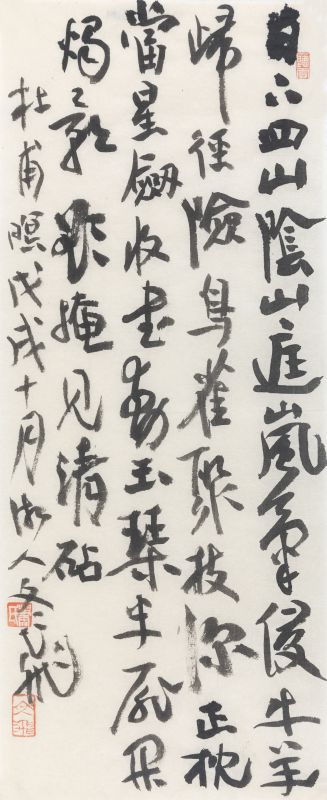 日下四山陰山庭嵐氣侵牛羊
歸徑險鳥雀聚枝深正枕
當星劍收書動玉琴半扉開
燭影欲掩見清砧
杜甫暝戊戌十月